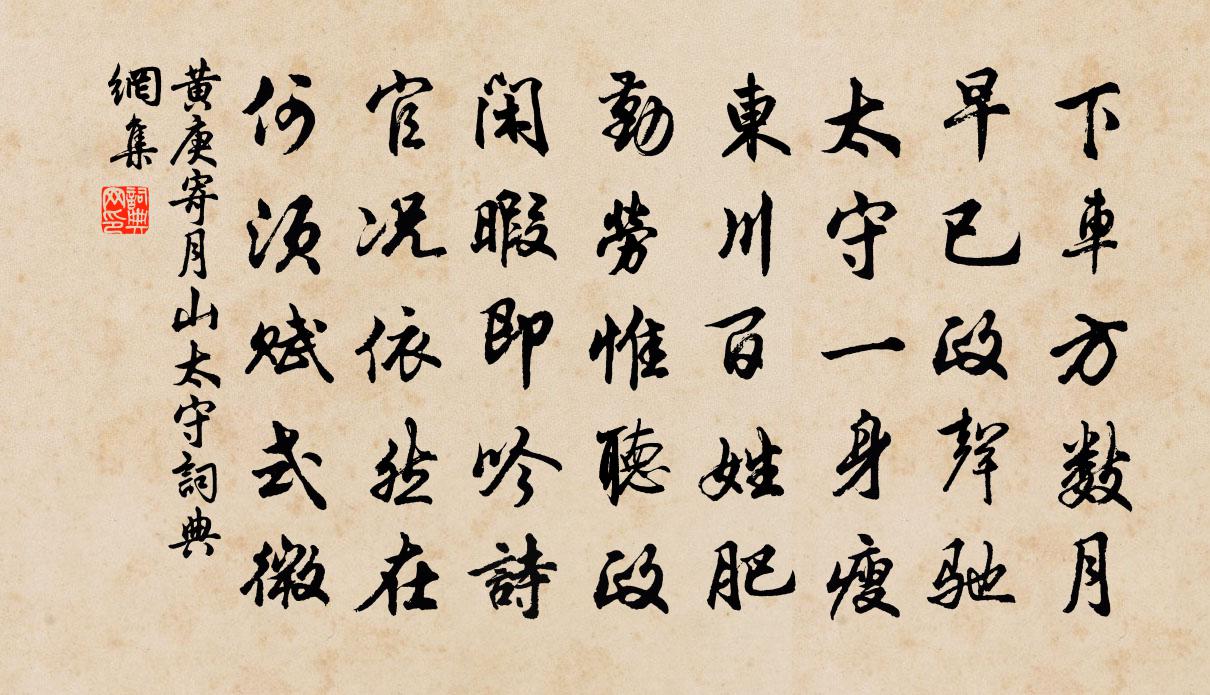 下車方數月
早已政聲馳
太守一身瘦
東川百姓肥
勤勞惟聽政
閑暇即吟詩
官况依然在
何須賦式微
黄庚寄月山太守詞典
網集
詞典
网印